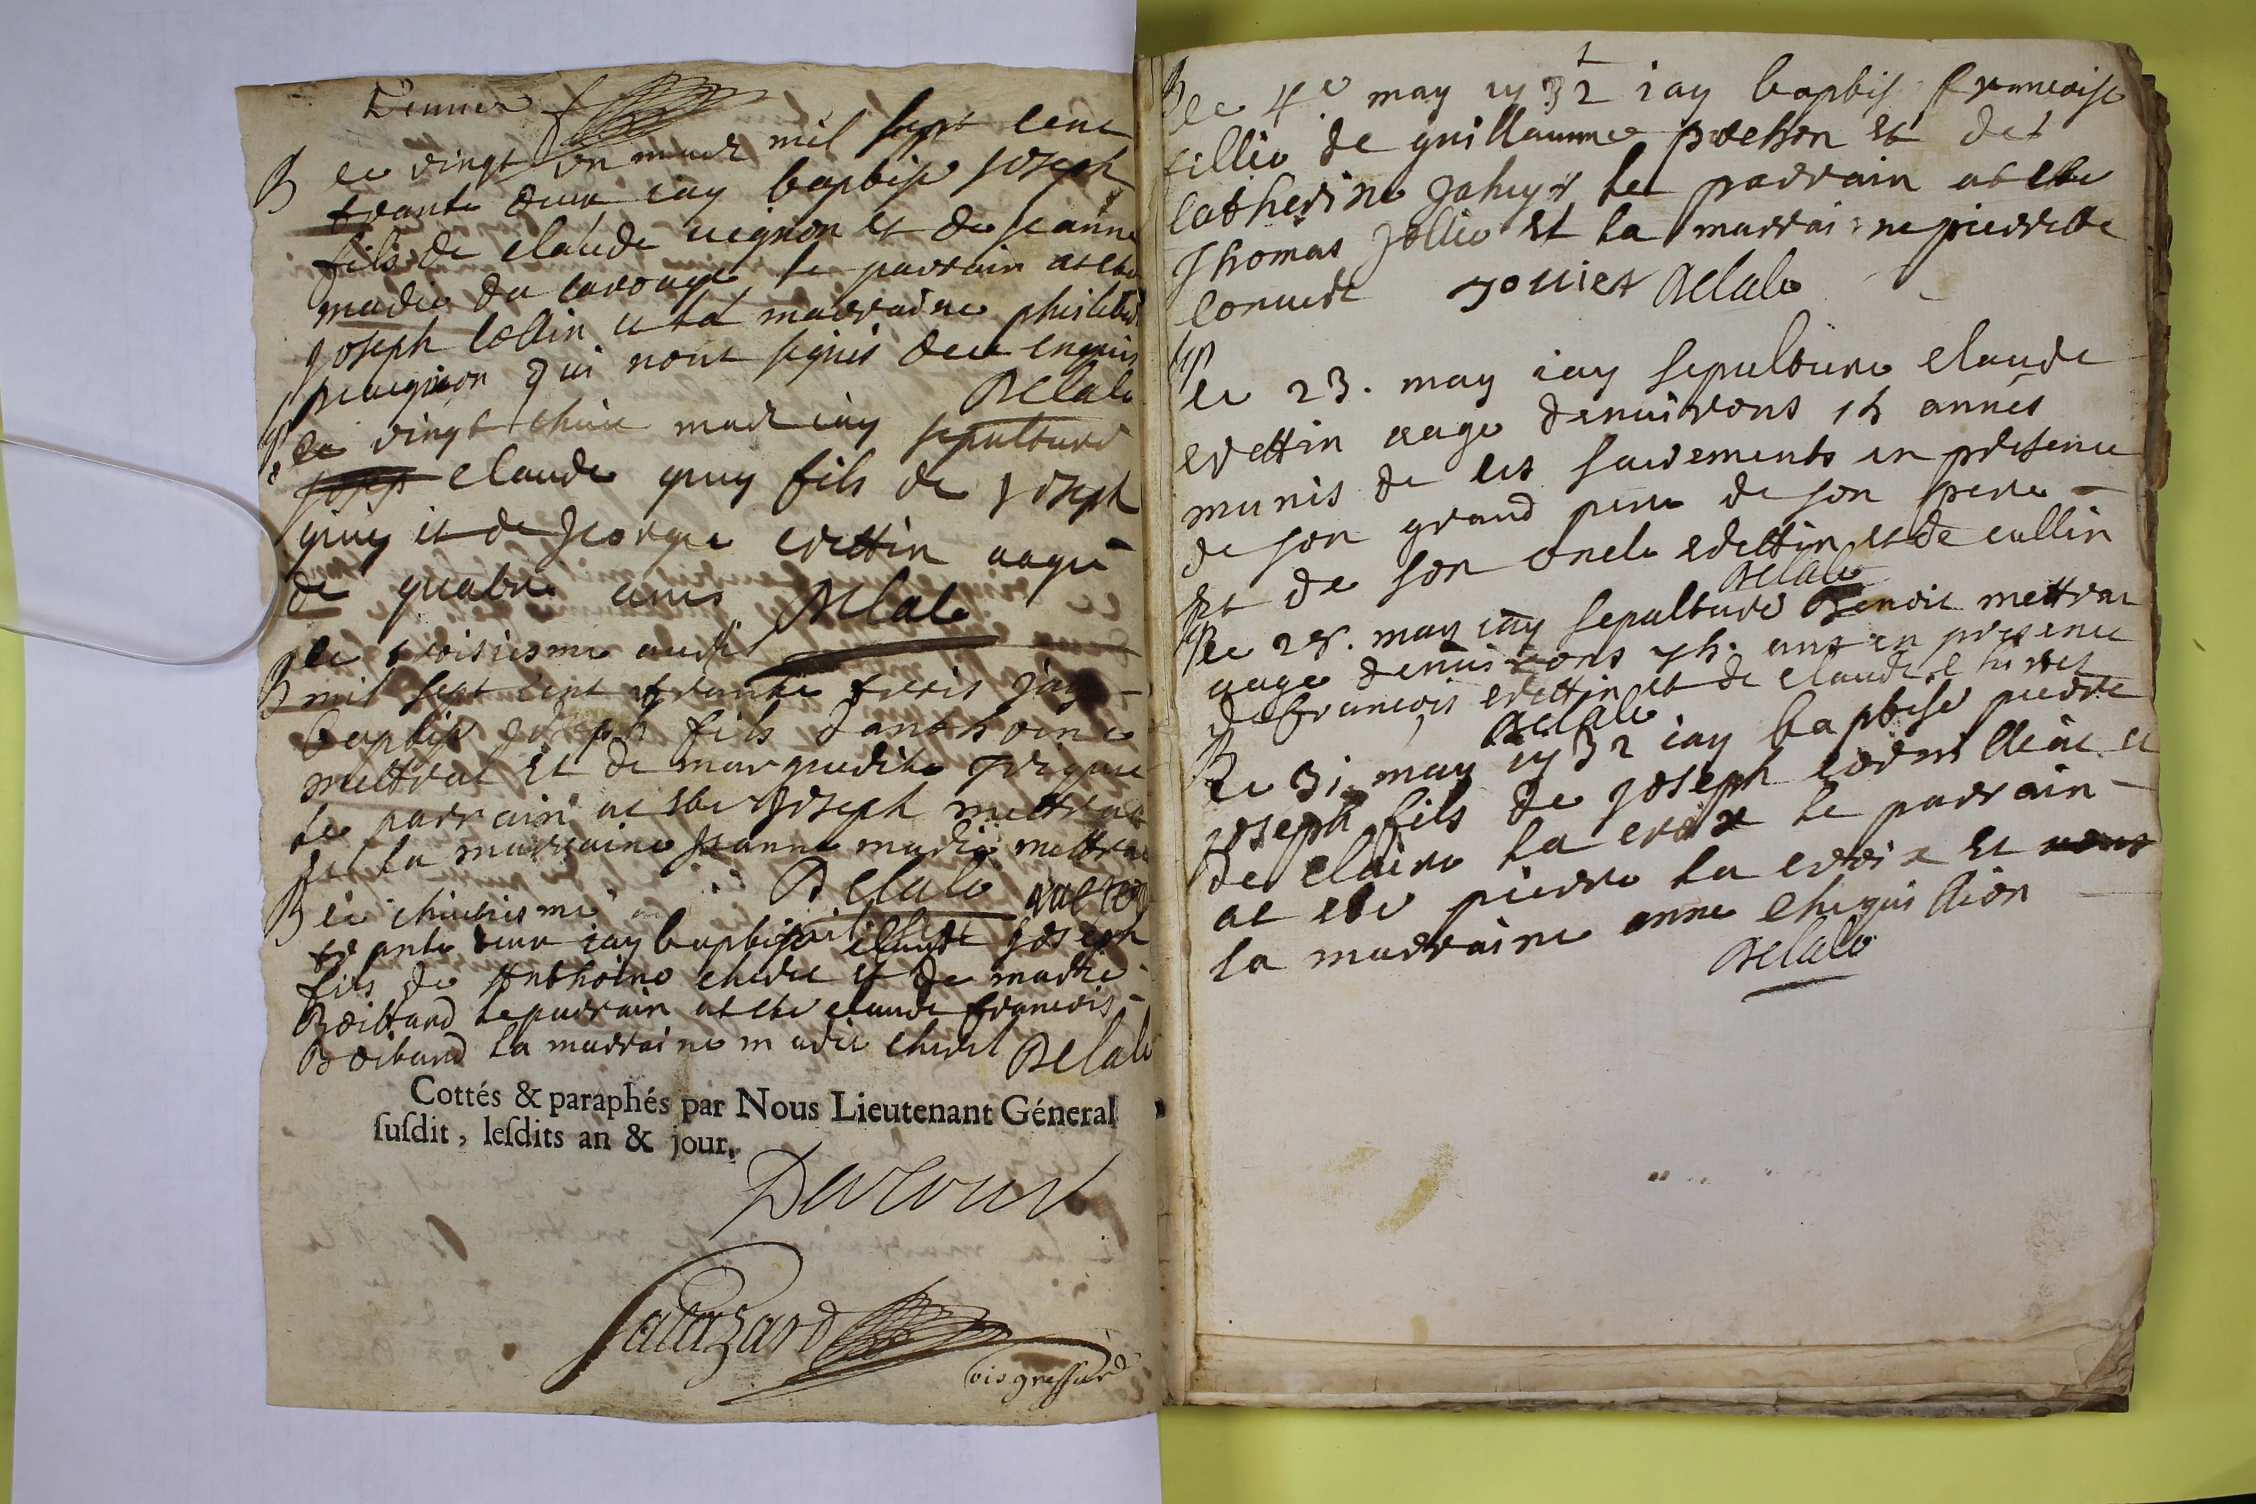 B le vingt un mars mil sept cent
trante deux iay baptise Joseph
fils de claude uignon et de Jeanne
marie du carouge le parrain at este
Joseph Collin et la marraine philiber
uignon qui nont signés de ce enquis
Delale
Sp le vingt mars iay sepulturé
claude guy fils de Joseph
guy et de George crettin aagé
de quatre ans Delale
B le troisiesme auril
mil sept cent trante trois Jay
baptise Joseph fils danthoine
mettrat Et de marguerite
le parrain at este Joseph mettrat
Et la marraine Jeanne marie mettrat
Delale
B le
trante deux iay baptise claude Joseph
fils de Anthoine cheure et de marie
Boittard le parrain at este claude francois
Boitard la marraine marie cheure Delale
Cottés & paraphés par Nous Lieutenant Géneral
ſuſdit, leſdits an & jour.
B le 4e may 1732 iay baptise francoise
fillie de guillaumme et de
catherine le parrain at este
Thomas Jollie Et la marraine pierrette
Delale
Sp
le 23. may iay sepulture claude
crettin aage denuirons annés
munis de ses sacrements en presence
de son grand pere de son pere
Et de son oncle crettin et de cullin
Delale
Sp le may iay sepulturé Benoit mettrat
aage denuirons ans en presence
de francois crettin et de claude
Delale
B le 31 may 1732 iay baptise pierre
Joseph fils de Joseph cormilliat et
de claire la croix le parrain
at este pierre la croix Et
la marraine anne
Delale